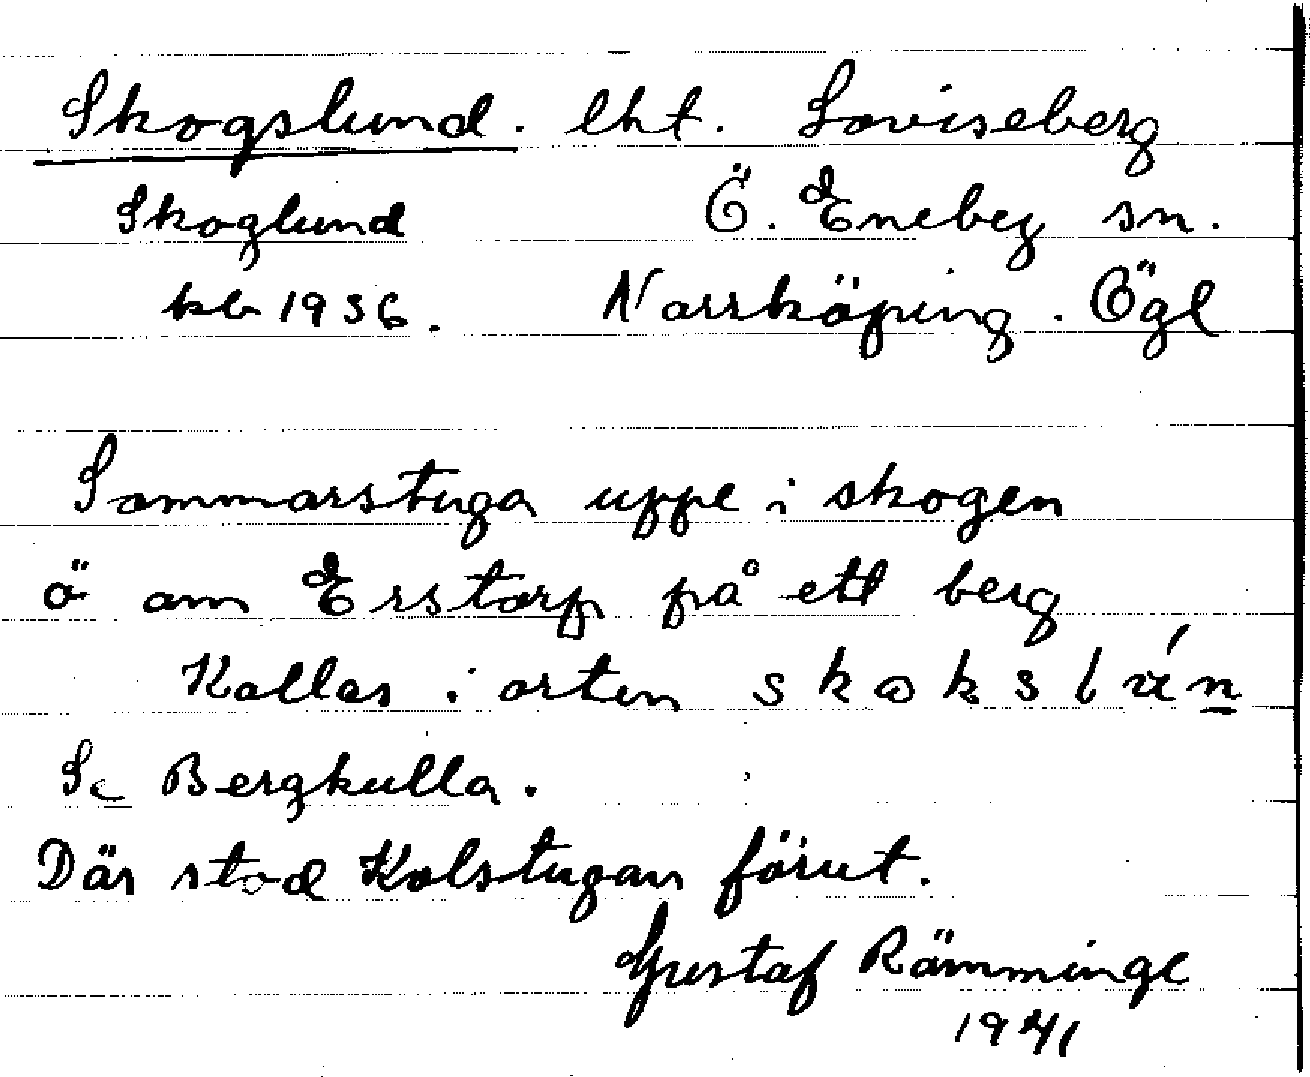 Skogslund. lht. Loviseberg
Skoglund Ö. Eneby sn.
kb 1936. Norrköping. Ögl
Sommarstuga uppe i skogen
ö om Erstorp på ett berg
Kallas i orten skokslán
Se Bergkulla.
Där stod Kolstugan förut.
Gustaf Rämminge
1941